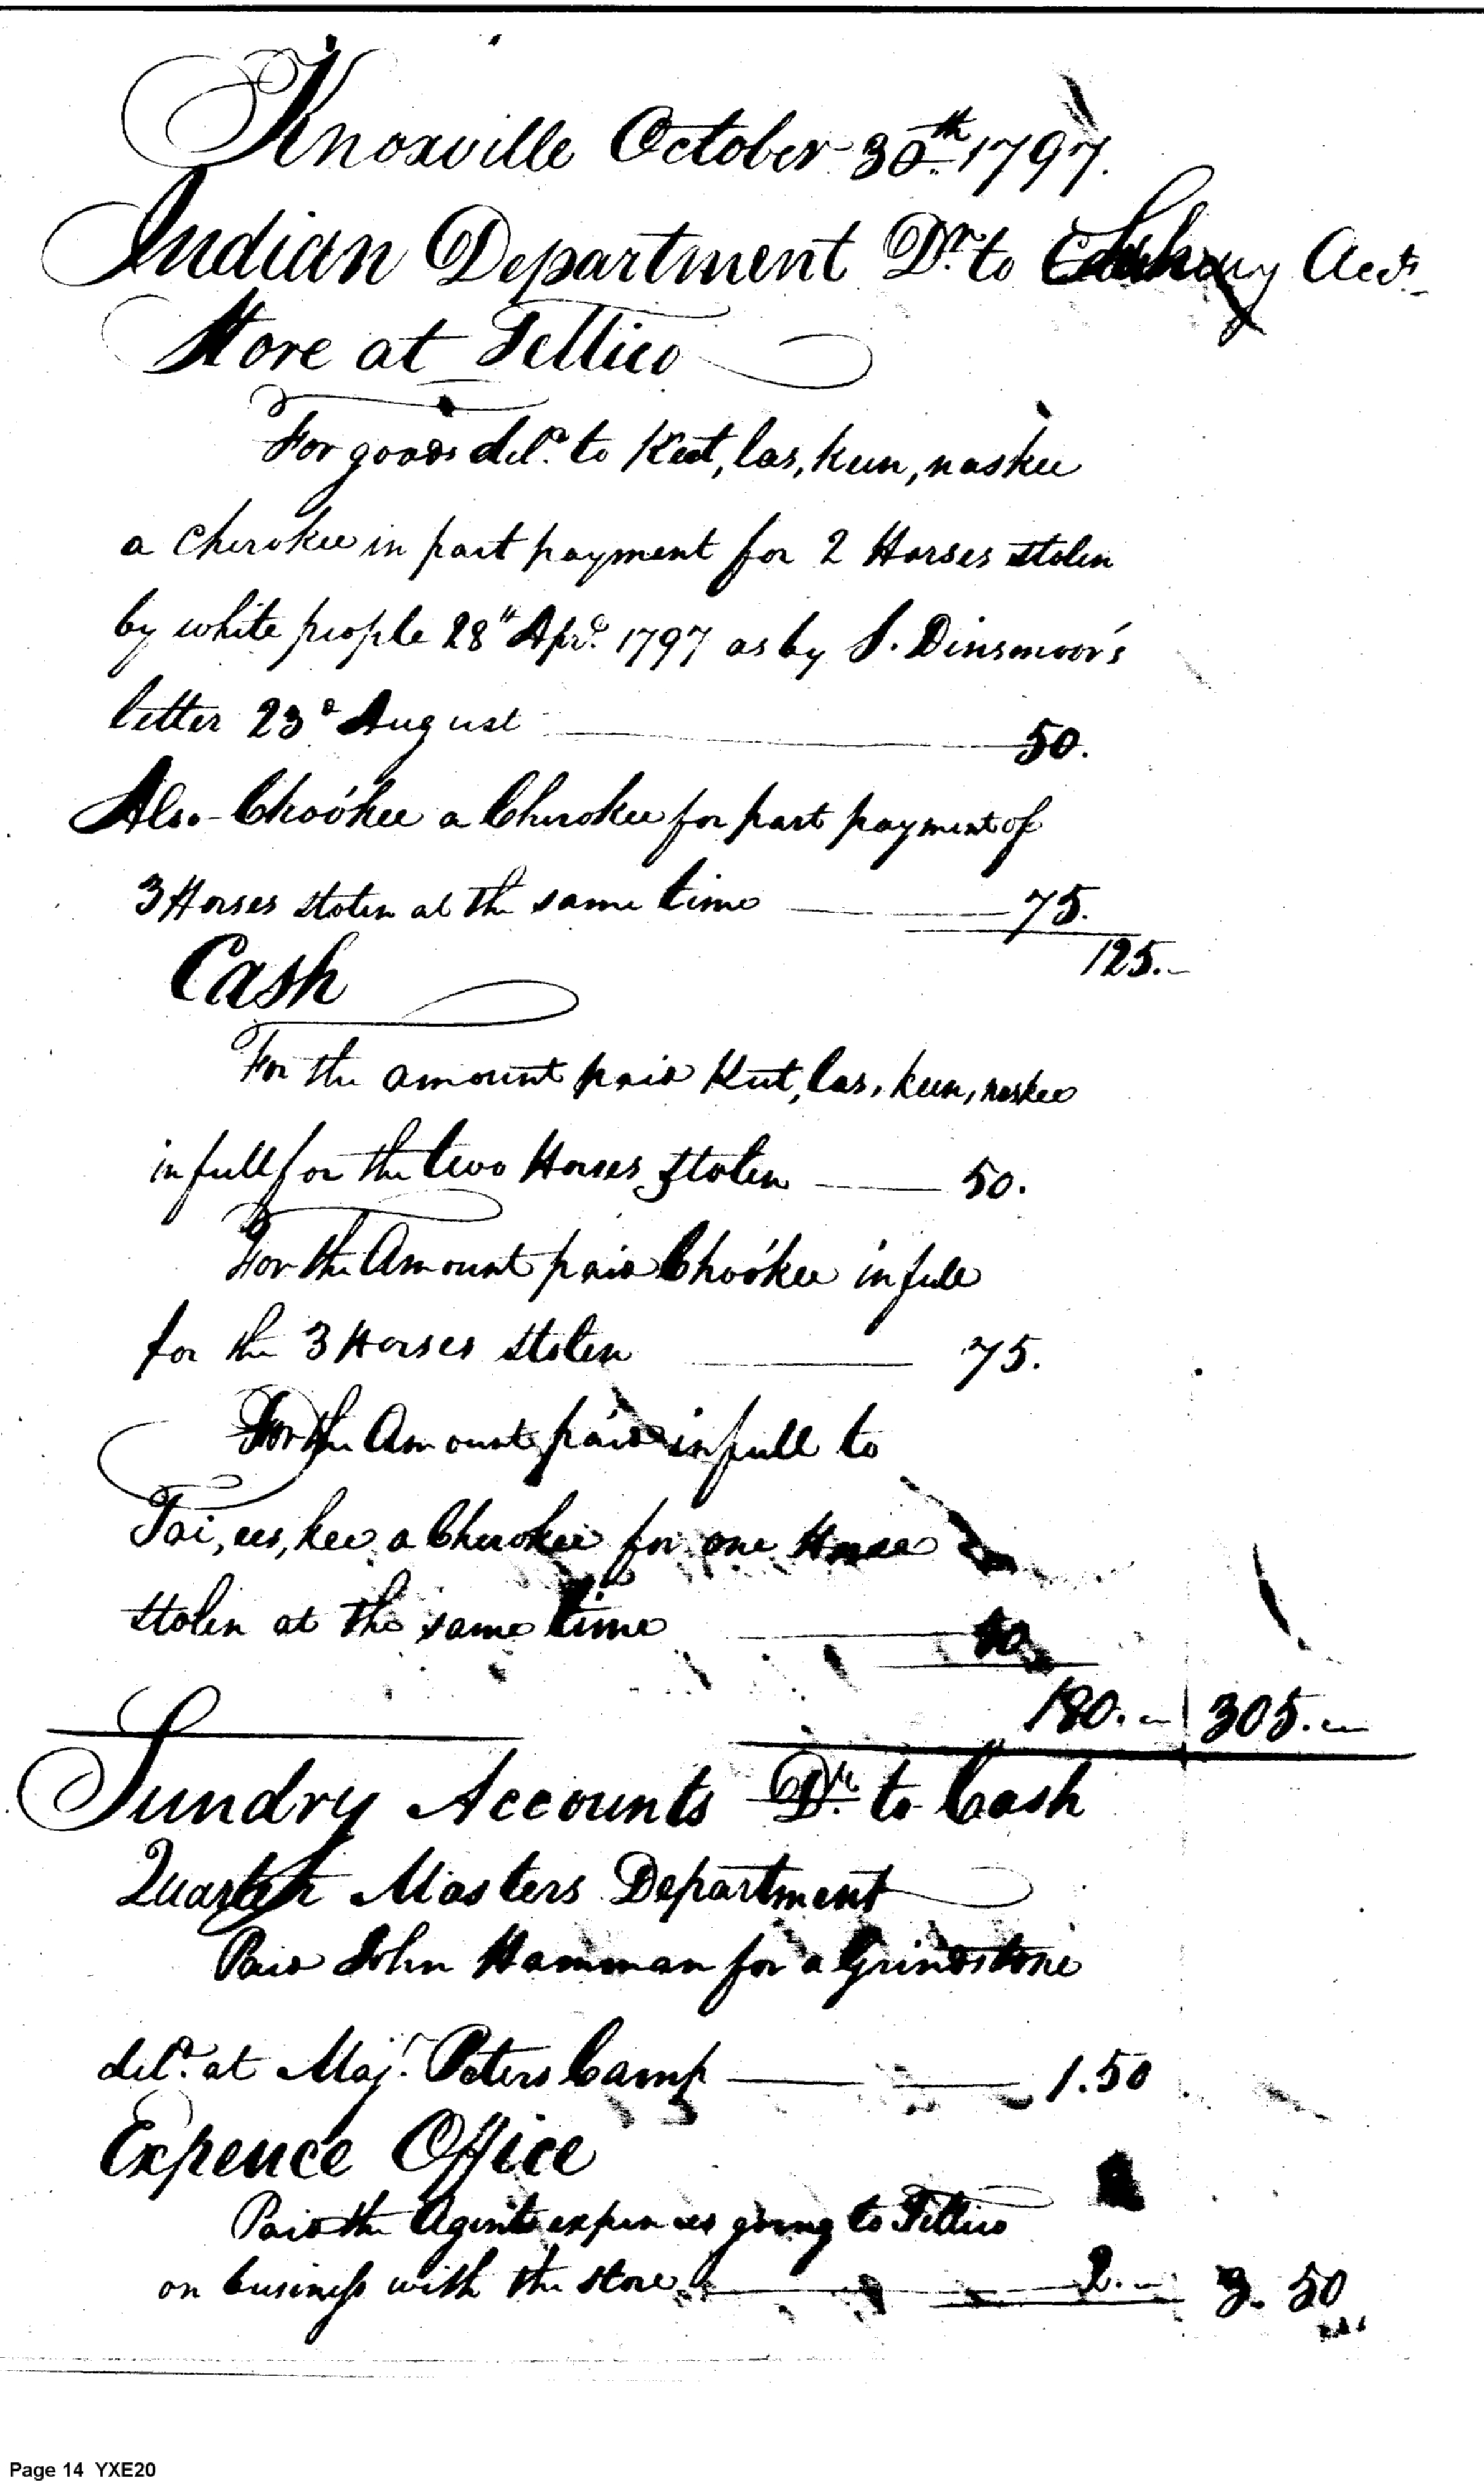 Knoxville October 30th 1797.
Indian Department Dr. to Sundry Accts
Store at Tellico
For goods deld. to Keet, las, keen, naskee
a Cherokee in part payment for 2 Horses stolen
by white people 28th Apr. 1797 as by S. Dinsmoor's
letter 23d August 50.
Also Chookee a Cherokee for part payment of
3 Horses stolen at the same time 75.
125.-
Cash
For the amount paid Keet, las, keen, naskee
in full for the two Horses stolen 50.
For the Amount paid Chookee in full
for the 3 Horses stolen 75.
For the Amount paid in full to
Tai, ees, kee a Cherokee for one Horse
stolen at the same time
180.- 305.-
Sundry Accounts Dr. to Cash
Quarter Masters Department
Paid John Hamman for a Grindstone
deld. at Majr. Peters Camp 1.50
Expence Office
Paid the Agents expences going to Tellico
on business with the store 2.- 3.50
Page 14 YXE20